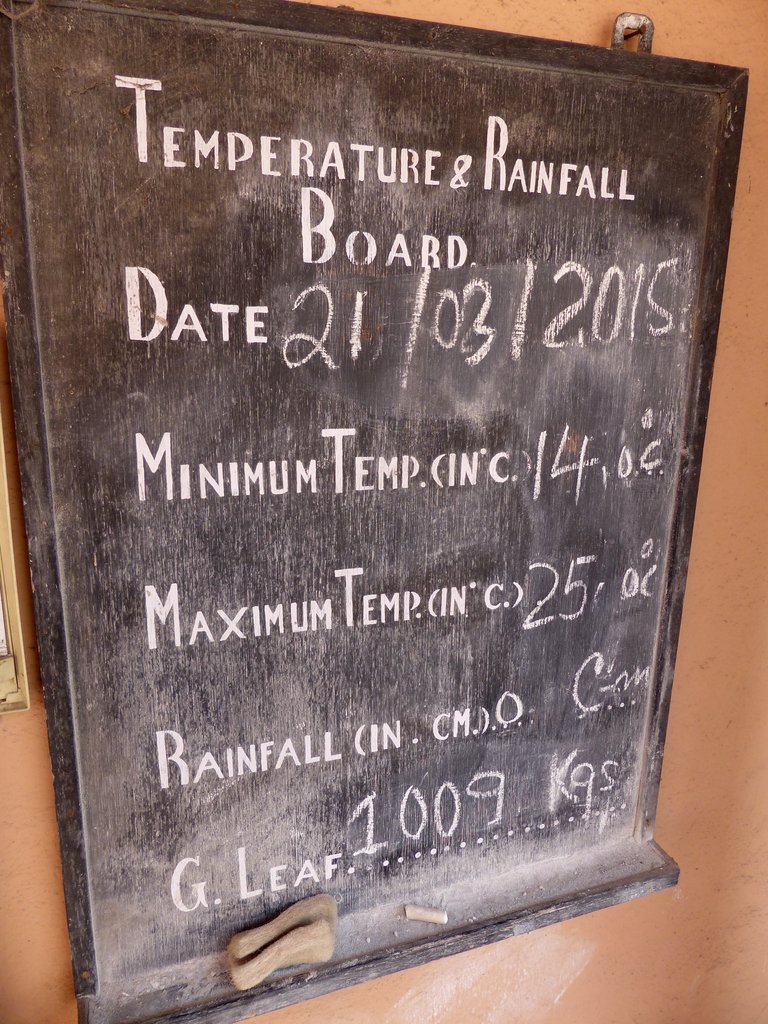 TEMPERATURE & RAINFALL
BOARD.
DATE 21/03/2015
MINIMUM TEMP. (IN°C.) 14.0°C
MAXIMUM TEMP. (IN°C.) 25.0°C
RAINFALL (IN. CM.) 0 Cm
G. LEAF. 1009 Kgs